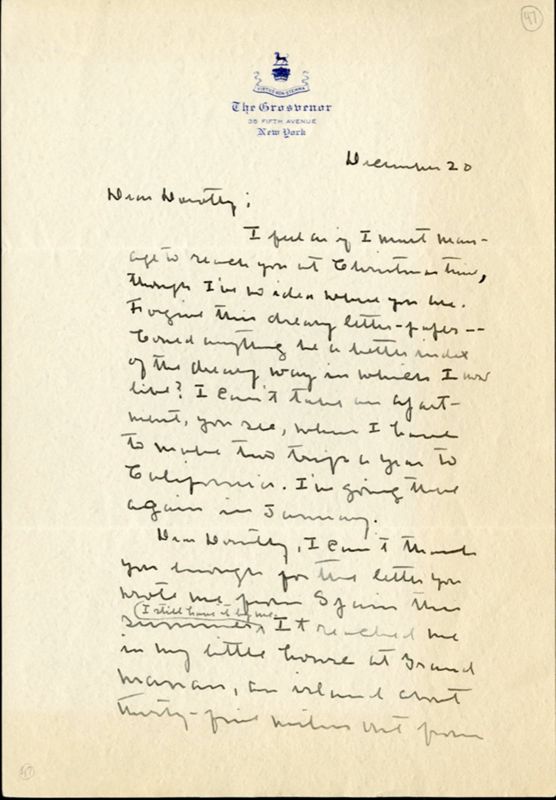 47
VIRTUS NON STEMMA
The Grosvenor
35 FIFTH AVENUE
New York
December 20
Dear Dorothy;
I feel as if I must man-
age to reach you at Christmas time,
though I've no idea where you are.
Forgive this dreary letter-paper--
Could anything be a better index
of the dreary way in which I now
live? I can't take an apart-
ment, you see, when I have
to make two trips a year to
California. I'm going there
again in January.
Dear Dorothy, I can't thank
you enough for the letter you
wrote me from Spain this
(I still have it by me)
summer. It reached me
in my little house at Grand
Manan, an island about
thirty-five miles out from
47